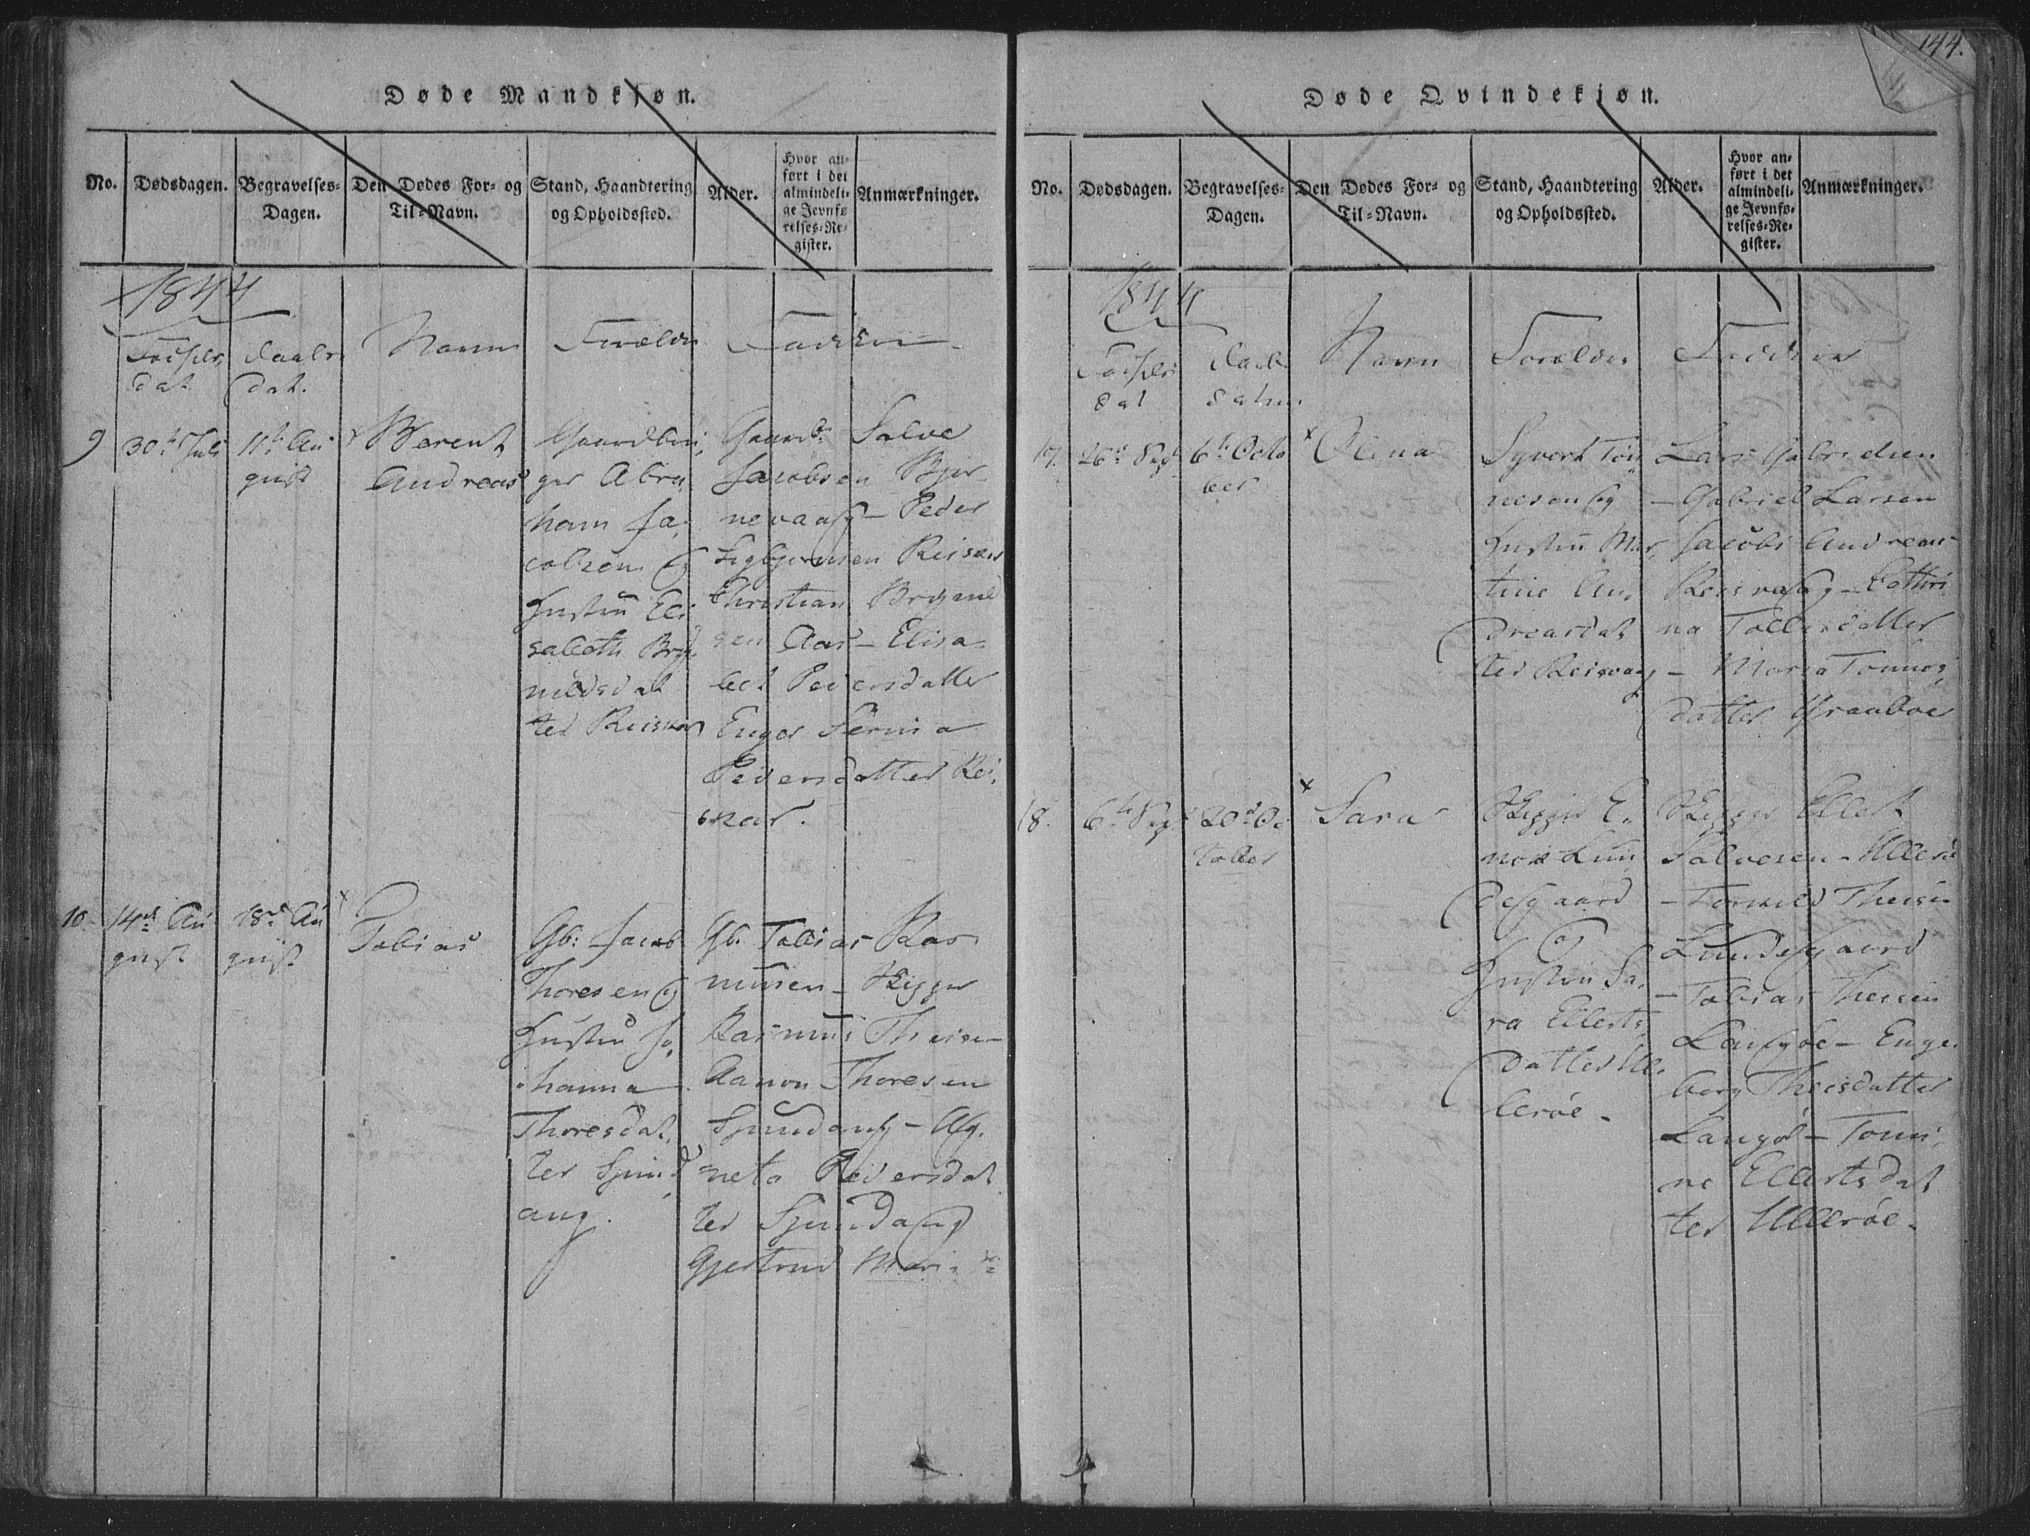 144.
Døde Mandkjøn.
No.
Dødsdagen.
Begravelses-
Dagen.
Den Dødes For- og
Til-Navn.
Stand, Haandtering
og Opholdssted.
Alder.
Hvor an-
ført i det
almindeli-
ge Jevnfø-
relses-Re-
gister.
Anmærkninger.
1844
Fødsels
dat
Daabs
dat.
Navn
Forældre
Faddere
9
30te Juli
11te Au
gust
Berent
Andreas
Gaardbru
ger Abra
ham Ja
cobsen og
Hustru Eli
sabeth Bryn
nildsdat
ter Reisvar
Gaardb: Salve
Jacobsen
Peder
Sigbjørnsen
Christian Brynild
sen Aas - Elisa
bet Pedersdatter
Pedersdatter
10
14de Au
gust
18de Au
gust
Tobias
Gb: Jacob
Thoresen og
Hustru Jo
hanna
Thoresdat
ter
Gb. Tobias Ras
musen - Skipper
Rasmus Theisen
Aanon Thoresen
Ag
neta Pedersdat
ter
Gjertrud Maria
Døde Qvindekjøn.
No.
Dødsdagen.
Begravelses-
Dagen.
Den Dødes For- og
Til-Navn.
Stand, Haandtering
og Opholdssted.
Alder.
Hvor an-
ført i det
almindeli-
ge Jevnfø-
relses-Re-
gister.
Anmærkninger.
1844
Fødsels
dat
Daabs
datum
Navn
Forældre
Faddere
17.
26de Sep
6te Octo
ber
Olina
Syvert Tøn
nesen og
Hustru Mar
tine An
dreasdat
ter
Lars Gabrielsen
- Gabriel Larsen
Jacob Andreas
- Cathri
na Tollefsdatter
- Maria Tønnes
datter Graaboe
18.
6te Sep
20de Oc
tober
Sara
Skipper E
nok Lun
desgaard
og
Hustru Sa
ra Ellerts
datter Ul
lerøe -
Skipper Ellert
Salvesen - Ullerøe
Theisen
Lundesgaard
- Tobias Theisen
Langøe - Enge
borg Theisdatter
Langøe - Tomi
ne Ellertsdat
ter Ullerøe -